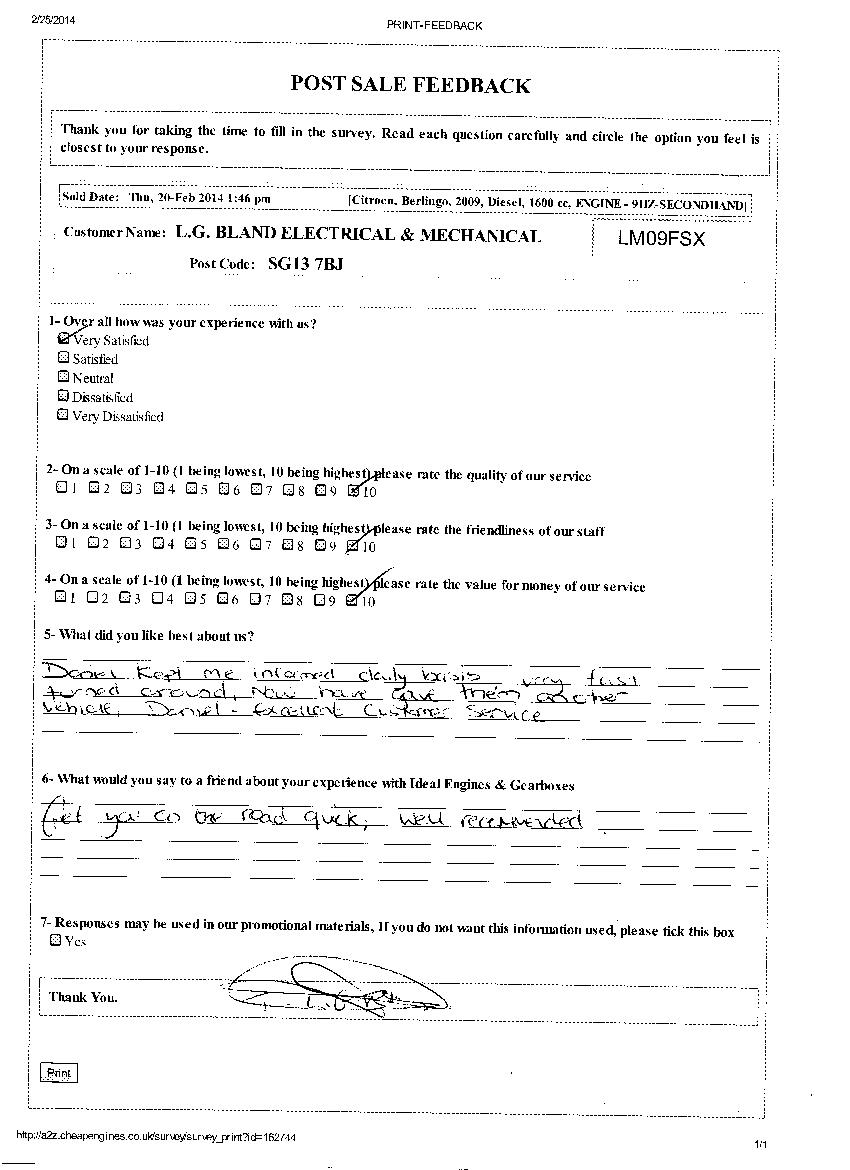 2/25/2014
PRINT-FEEDBACK
POST SALE FEEDBACK
Thank you for taking the time to fill in the survey. Read each question carefully and circle the option you feel is
closest to your response.
Sold Date: Thu, 20-Feb 2014 1:46 pm [Citroen, Berlingo, 2009, Diesel, 1600 cc, ENGINE - 9HZ-SECONDHAND]
Customer Name: L.G. BLAND ELECTRICAL & MECHANICAL LM09FSX
Post Code: SG13 7BJ
1- Over all how was your experience with us?
Very Satisfied
Satisfied
Neutral
Dissatisfied
Very Dissatisfied
2- On a scale of 1-10 (1 being lowest, 10 being highest) please rate the quality of our service
1 2 3 4 5 6 7 8 9 10
3- On a scale of 1-10 (1 being lowest, 10 being highest) please rate the friendliness of our staff
1 2 3 4 5 6 7 8 9 10
4- On a scale of 1-10 (1 being lowest, 10 being highest) please rate the value for money of our service
1 2 3 4 5 6 7 8 9 10
5- What did you like best about us?
Daniel Kept me informed daily basis very fast
turned around, Now have gave them another
vehicle, Daniel - Excellent Customer Service
6- What would you say to a friend about your experience with Ideal Engines & Gearboxes
Get you on the road quick, well recommended
7- Responses may be used in our promotional materials, If you do not want this information used, please tick this box
Yes
Thank You.
Print
http://a2z.cheapengines.co.uk/survey/survey_print?id=162744
1/1